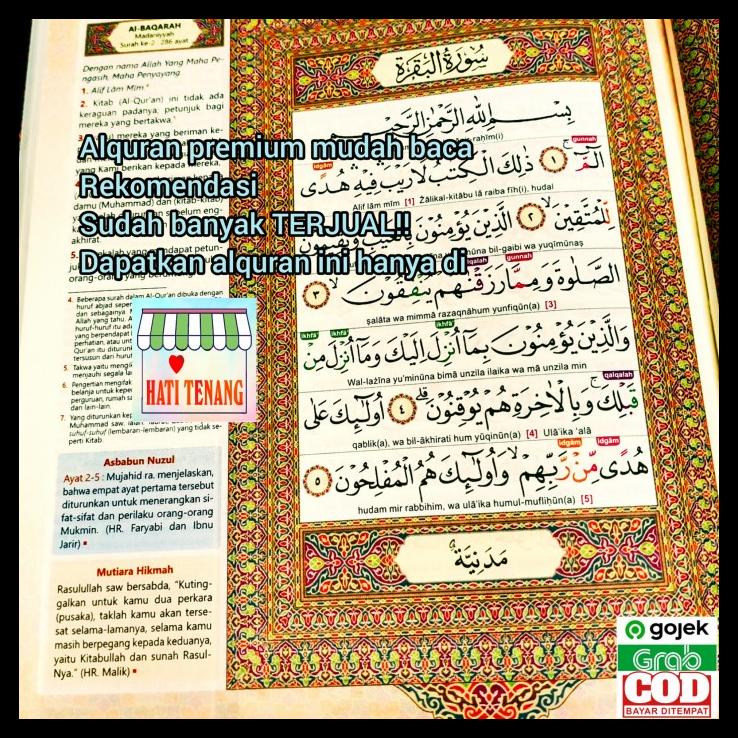 Al-BAQARAH
Madaniyyah
Surah ke-2 : 286 ayat
Dengan nama Allah Yang Maha Pe-
ngasih, Maha Penyayang.
1. Alif Lām Mīm
2. Kitab (Al-Qur'an) ini tidak ada
keraguan padanya; petunjuk bagi
mereka yang bertakwa,
mereka yang beriman ke-
Alquran premium mudah baca
yang Kami berikan kepada mereka,
Rekomendasi
damu (Muhammad) dan (kitab-kitab)
Sudah banyak TERJUAL!!
akhirat.
Dapatkan alquran ini hanya di
orang-orang yang
4. Beberapa surah dalam Al-Qur'an dibuka dengan
huruf abjad
dan sebagainya.
Allah yang tahu.
huruf-huruf itu
yang berpendapat
perhatian, atau
Qur'an itu diturunkan
tersusun dari huruf
5. Takwa yaitu
menjauhi segala
6. Pengertian
belanja untuk
perguruan, rumah
dan lain-lain.
7. Yang diturunkan
Muhammad saw. ialah
suhuf-suhuf (lembaran-lembaran) yang tidak se-
perti Kitab
HATI TENANG
Asbabun Nuzul
Ayat 2-5 : Mujahid ra. menjelaskan,
bahwa empat ayat pertama tersebut
diturunkan untuk menerangkan si-
fat-sifat dan perilaku orang-orang
Mukmin. (HR. Faryabi dan Ibnu
Jarir)
Mutiara Hikmah
Rasulullah saw bersabda, "Kuting-
galkan untuk kamu dua perkara
(pusaka), taklah kamu akan terse-
sat selama-lamanya, selama kamu
masih berpegang kepada keduanya,
yaitu Kitabullah dan sunah Rasul-
Nya." (HR. Malik)
سُوْرَةُ الْبَقَرَةِ
بِسْمِ اللهِ الرَّحْمٰنِ الرَّحِيْمِ
rahīm(i)
idgām gunnah
الۤمّۤ ۚ ١ ذٰلِكَ الْكِتٰبُ لَا رَيْبَ فِيْهِ ۛ هُدًى
Alif lām mīm [1] Żālikal-kitābu lā raiba fīh(i), hudal
لِّلْمُتَّقِيْنَ ۙ ٢ الَّذِيْنَ يُؤْمِنُوْنَ بِالْغَيْبِ وَيُقِيْمُوْنَ
bil-gaibi wa yuqīmūnaṣ
qalqalah gunnah
الصَّلٰوةَ وَمِمَّا رَزَقْنٰهُمْ يُنْفِقُوْنَ ۙ ٣
ṣalāta wa mimmā razaqnāhum yunfiqūn(a) [3]
ikhfā' ikhfā' ikhfā'
وَالَّذِيْنَ يُؤْمِنُوْنَ بِمَآ اُنْزِلَ اِلَيْكَ وَمَآ اُنْزِلَ مِنْ
Wal-lażīna yu'minūna bimā unzila ilaika wa mā unzila min
qalqalah
قَبْلِكَ ۚ وَبِالْاٰخِرَةِ هُمْ يُوْقِنُوْنَ ۗ ٤ اُولٰۤىِٕكَ عَلٰى
qablik(a), wa bil-ākhirati hum yūqinūn(a) [4] Ulā'ika 'alā
idgām idgām
هُدًى مِّنْ رَّبِّهِمْ ۙ وَاُولٰۤىِٕكَ هُمُ الْمُفْلِحُوْنَ ٥
hudam mir rabbihim, wa ulā'ika humul-mufliḥūn(a) [5]
مَدَنِيَّة
gojek
Grab
COD
BAYAR DITEMPAT